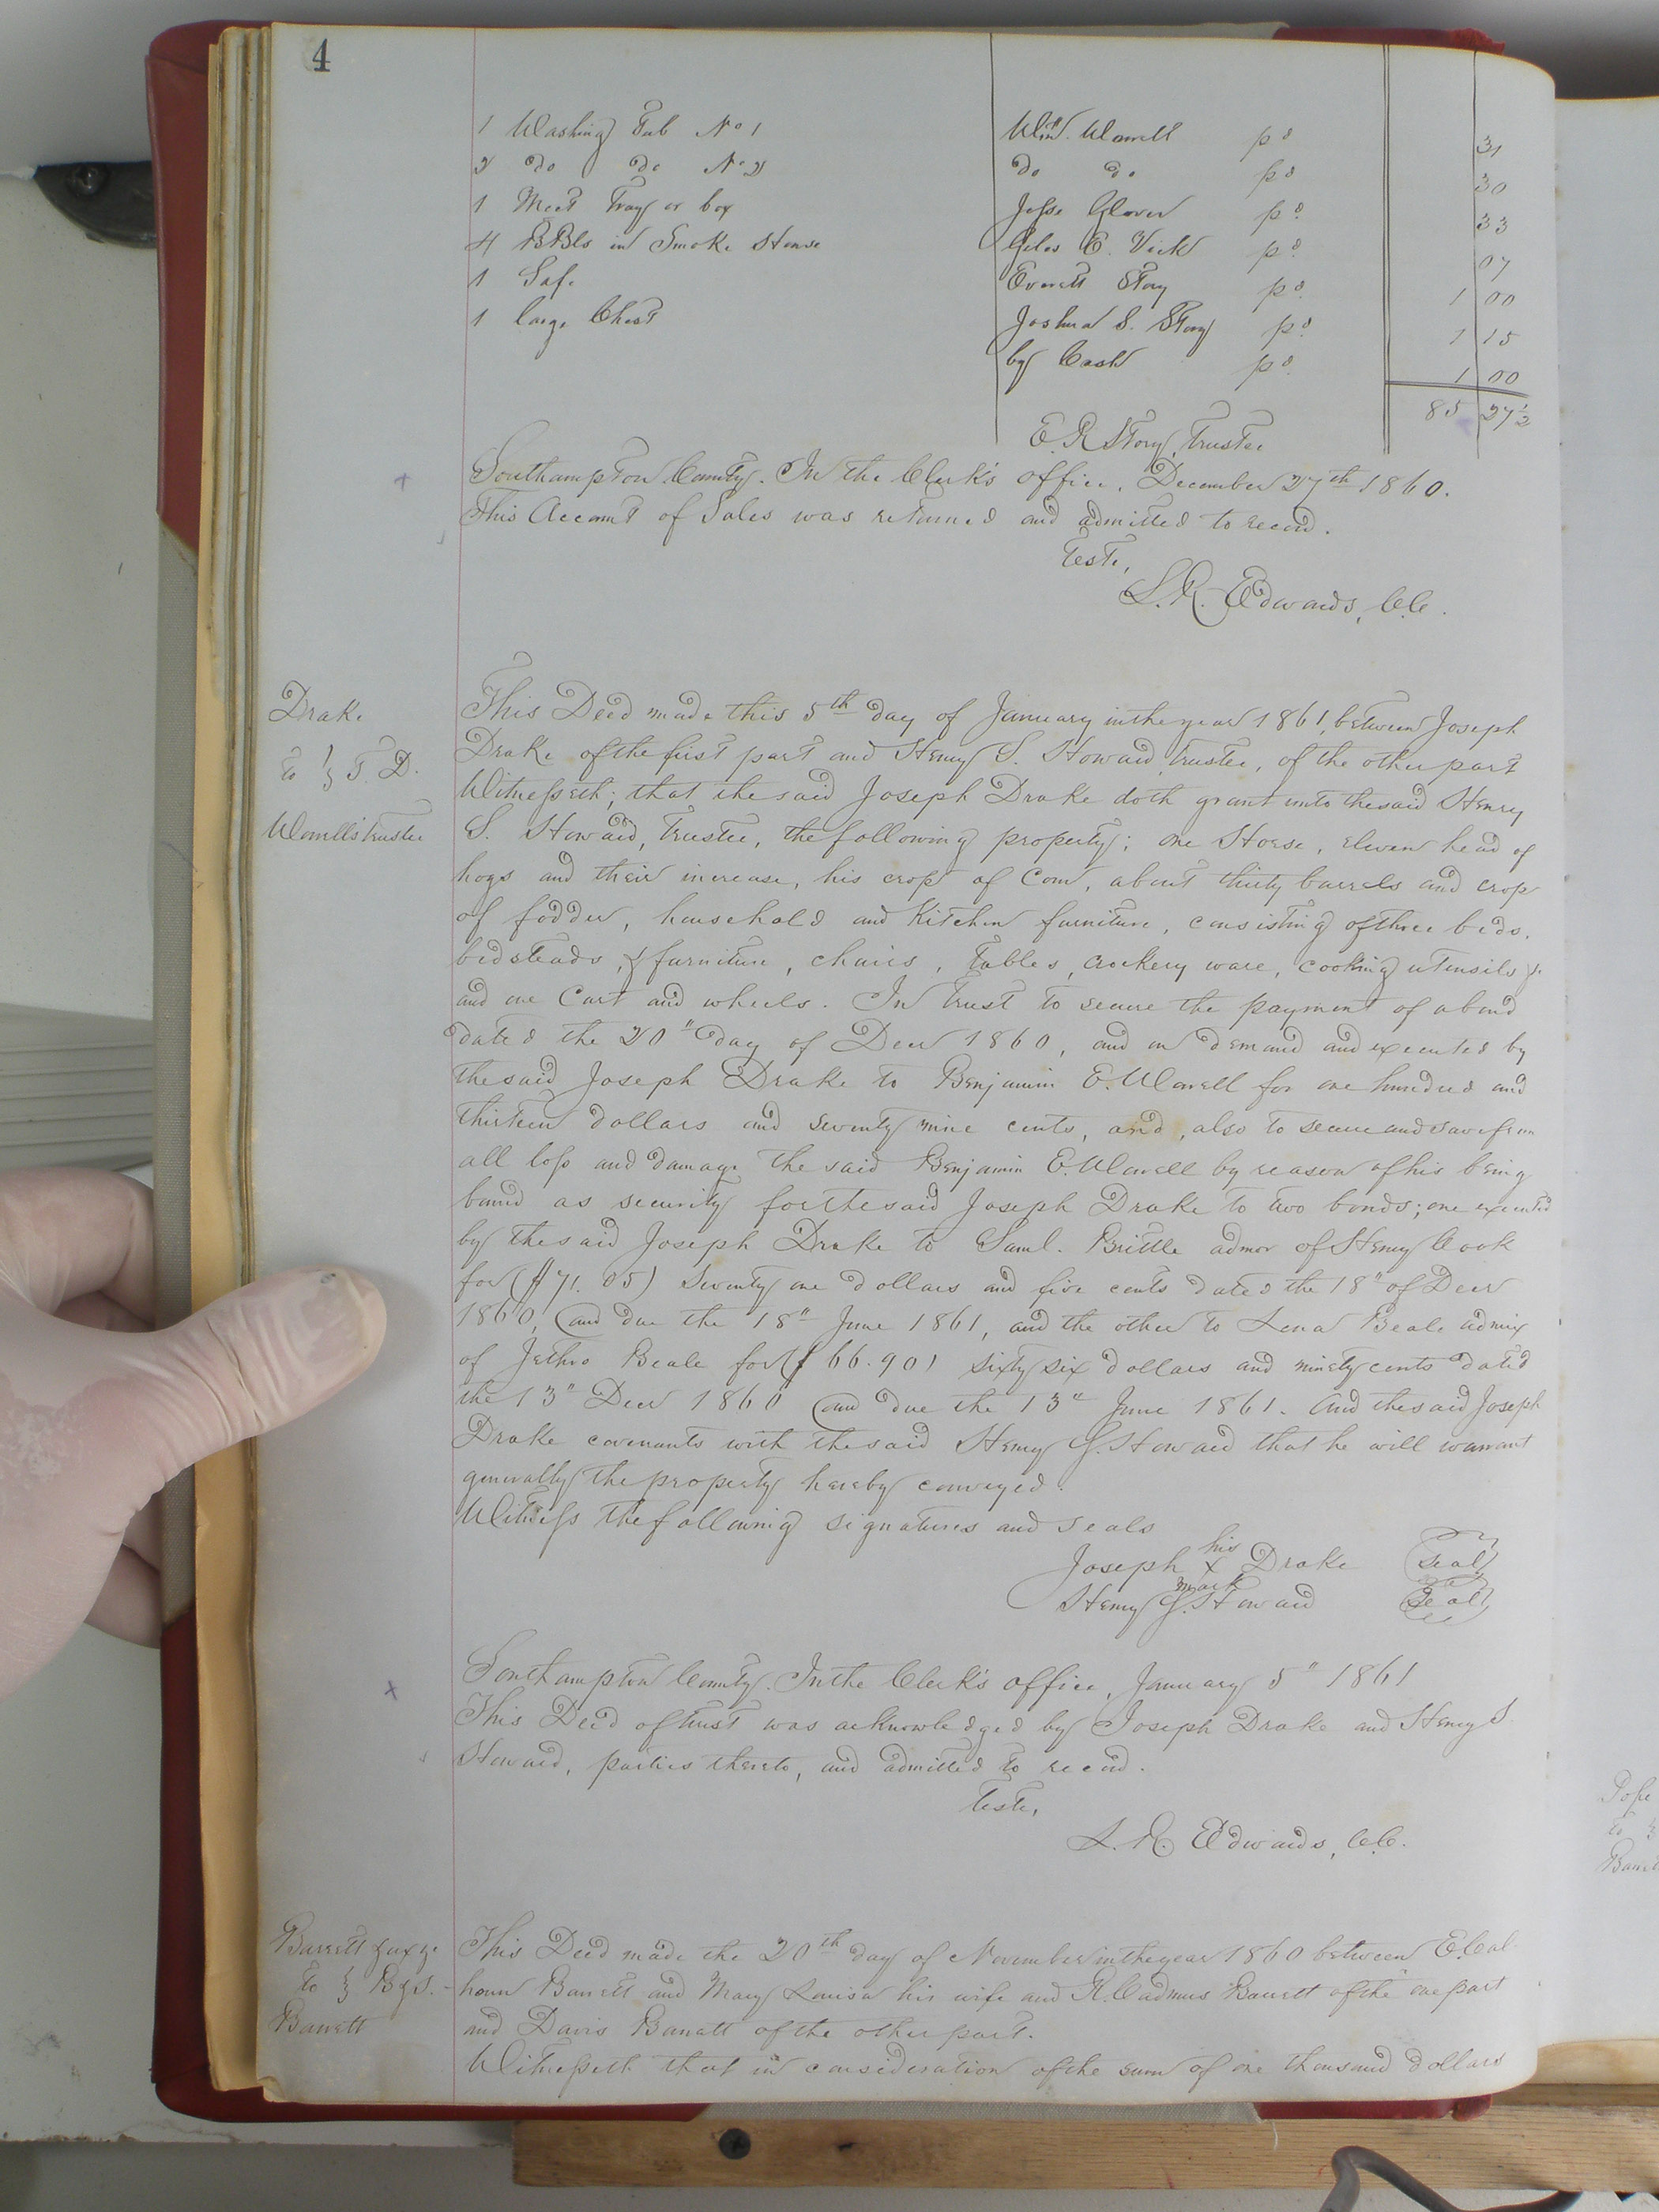 4
1 Washing Tub No 1 Wm. Worrell pd 31
2 do do No 2 do do pd 30
1 Meet Tray or box Jesse Glover pd 33
4 BBls in Smoke House Giles E. Vick pd 07
1 Safe Everett Story pd 1 00
1 large Chest Joshua S. Story pd 1 15
by Cash pd 1 00
85 27½
E. R Story, Trustee
Southampton County. In the Clerk's office, December 27th 1860.
This Account of Sales was returned and admitted to record.
Teste,
L. R. Edwards, C.C.
Drake
to } T. D.
Worrell's trustee
This Deed made this 5th day of January in the year 1861, between Joseph
Drake of the first part and Henry S. Howard trustee, of the other part
Witnesseth; that the said Joseph Drake doth grant unto the said Henry
S. Howard, trustee, the following property; one Horse, eleven head of
hogs and their increase, his crop of Corn, about thirty barrels and crop
of fodder, household and Kitchen furniture, consisting of three beds,
bedsteads, & furniture, chairs, tables, crockery ware, cooking utensils &c
and one Cart and wheels. In trust to secure the payment of a bond
dated the 20" day of Decr 1860, and on demand and executed by
the said Joseph Drake to Benjamin E. Worrell for one hundred and
thirteen dollars and seventy nine cents, and, also to secure and save from
all loss and damage the said Benjamin E. Worrell by reason of his being
bound as security for the said Joseph Drake to two bonds; one executed
by the said Joseph Drake to Saml. Brittle admor of Henry Cook
for ($71.05) Seventy one dollars and five cents dated the 18" of Decr
1860, and due the 18" June 1861, and the other to Lena Beale admix
of Jethro Beale for ($66.90) sixty six dollars and ninety cents dated
the 13" Decr 1860 and due the 13" June 1861. And the said Joseph
Drake covenants with the said Henry S. Howard that he will warrant
generally the property hereby conveyed.
Witness the following signatures and seals
Joseph his x mark Drake (seal)
Henry S. Howard (Seal)
Southampton County. In the Clerk's office, January 5" 1861
This Deed of trust was acknowledged by Joseph Drake and Henry S.
Howard, parties thereto, and admitted to record.
Teste,
L. R. Edwards, C.C.
Barrett & ux &c
to } B & S.
Barrett
This Deed made the 20th day of November in the year 1860 between E. Cal-
houn Barrett and Mary Louisa his wife and R. Cadmus Barrett of the one part
and Davis Barrett of the other part.
Witnesseth that in consideration of the sum of one thousand dollars
Pope
to